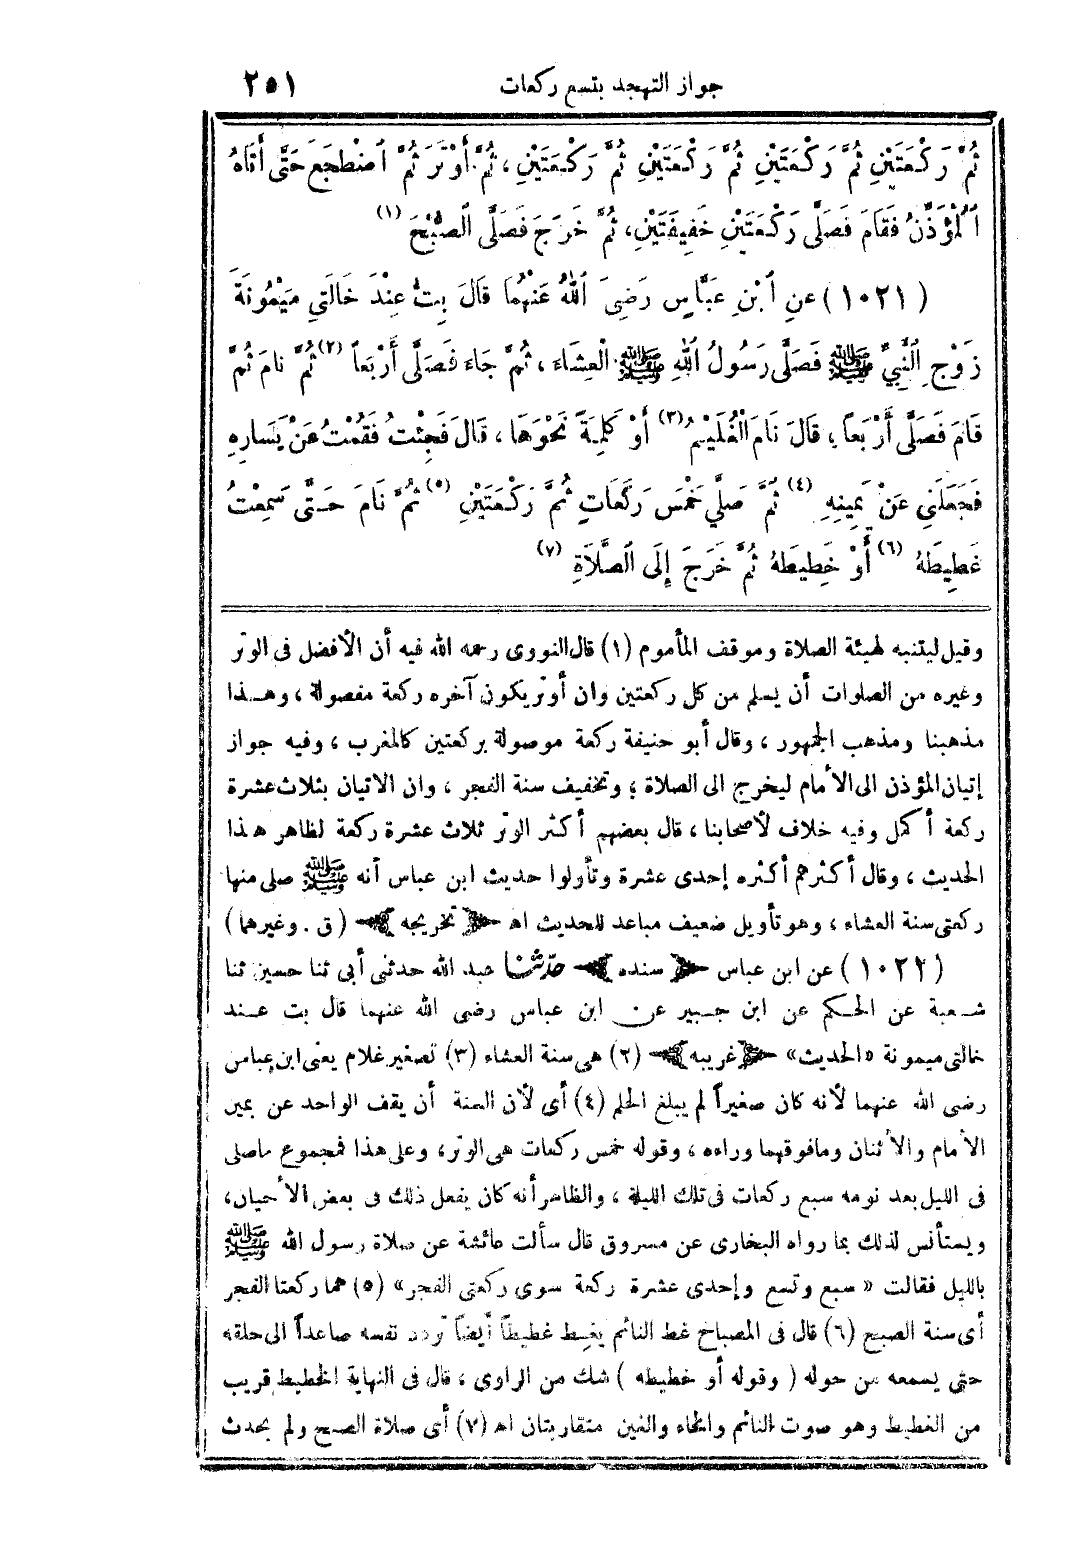 جواز التهجد بتسع ركعات ٢٥١
ثُمَّ رَكْعَتَيْنِ ثُمَّ رَكْعَتَيْنِ ثُمَّ رَكْعَتَيْنِ ثُمَّ رَكْعَتَيْنِ، ثُمَّ أَوْتَرَ ثُمَّ اضْطَجَعَ حَتَّى أَتَاهُ
الْمُؤَذِّنُ فَقَامَ فَصَلَّى رَكْعَتَيْنِ خَفِيفَتَيْنِ، ثُمَّ خَرَجَ فَصَلَّى الصُّبْحَ (١)
(١٠٢١) عَنِ ابْنِ عَبَّاسٍ رَضِيَ اللهُ عَنْهُمَا قَالَ بِتُّ عِنْدَ خَالَتِي مَيْمُونَةَ
زَوْجِ النَّبِيِّ ﷺ فَصَلَّى رَسُولُ اللهِ ﷺ الْعِشَاءَ، ثُمَّ جَاءَ فَصَلَّى أَرْبَعاً (٢) ثُمَّ نَامَ ثُمَّ
قَامَ فَصَلَّى أَرْبَعاً، قَالَ نَامَ الْغُلَيْمُ (٣) أَوْ كَلِمَةً نَحْوَهَا، قَالَ فَجِئْتُ فَقُمْتُ عَنْ يَسَارِهِ
فَجَعَلَنِي عَنْ يَمِينِهِ (٤) ثُمَّ صَلَّي خَمْسَ رَكَعَاتٍ ثُمَّ رَكْعَتَيْنِ (٥) ثُمَّ نَامَ حَتَّى سَمِعْتُ
غَطِيطَهُ (٦) أَوْ خَطِيطَهُ ثُمَّ خَرَجَ إِلَى الصَّلَاةِ (٧)
وقيل ليتنبه لهيئة الصلاة وموقف المأموم (١) قال النووى رحمه الله فيه أن الأفضل فى الوتر
وغيره من الصلوات أن يسلم من كل ركعتين وان أوتر يكون آخره ركعة مفصولة، وهذا
مذهبنا ومذهب الجمهور، وقال أبو حنيفة ركعة موصولة بركعتين كالمغرب، وفيه جواز
إتيان المؤذن الى الأمام ليخرج الى الصلاة؛ وتخفيف سنة الفجر، وان الاتيان بثلاث عشرة
ركعة أكمل وفيه خلاف لأصحابنا، قال بعضهم أكثر الوتر ثلاث عشرة ركعة لظاهر هذا
الحديث، وقال أكثرهم أكثره إحدى عشرة وتأولوا حديث ابن عباس أنه ﷺ صلى منها
ركعتى سنة العشاء، وهو تأويل ضعيف مباعد للحديث اه ﴿ تخريجه ﴾ (ق. وغيرهما)
(١٠٢٢) عن ابن عباس ﴿ سنده ﴾ حدّثنا عبد الله حدثنى أبى ثنا حسين ثنا
شعبة عن الحكم عن ابن جبير عن ابن عباس رضى الله عنهما قال بت عند
خالتى ميمونة «الحديث» ﴿ غريبه ﴾ (٢) هى سنة العشاء (٣) تصغير غلام يعنى ابن عباس
رضى الله عنهما لأنه كان صغيراً لم يبلغ الحلم (٤) أى لأن السنة أن يقف الواحد عن يمين
الأمام والأثنان ومافوقهما وراءه، وقوله خمس ركعات هى الوتر، وعلى هذا فمجموع ماصلى
فى الليل بعد نومه سبع ركعات فى تلك الليلة، والظاهر أنه كان يفعل ذلك فى بعض الأحيان،
ويستأنس لذلك بما رواه البخارى عن مسروق قال سألت عائشة عن صلاة رسول الله ﷺ
بالليل فقالت « سبع وتسع وإحدى عشرة ركعة سوى ركعتى الفجر» (٥) هما ركعتا الفجر
أى سنة الصبح (٦) قال فى المصباح غط النائم يغِط غطيطاً أيضاً تردد نفسه صاعداً الى حلقه
حتى يسمعه من حوله ( وقوله أو خطيطه ) شك من الراوى، قال فى النهاية الخطيط قريب
من الغطيط وهو صوت النائم والخاء والغين متقاربتان اه (٧) أى صلاة الصبح ولم يحدث